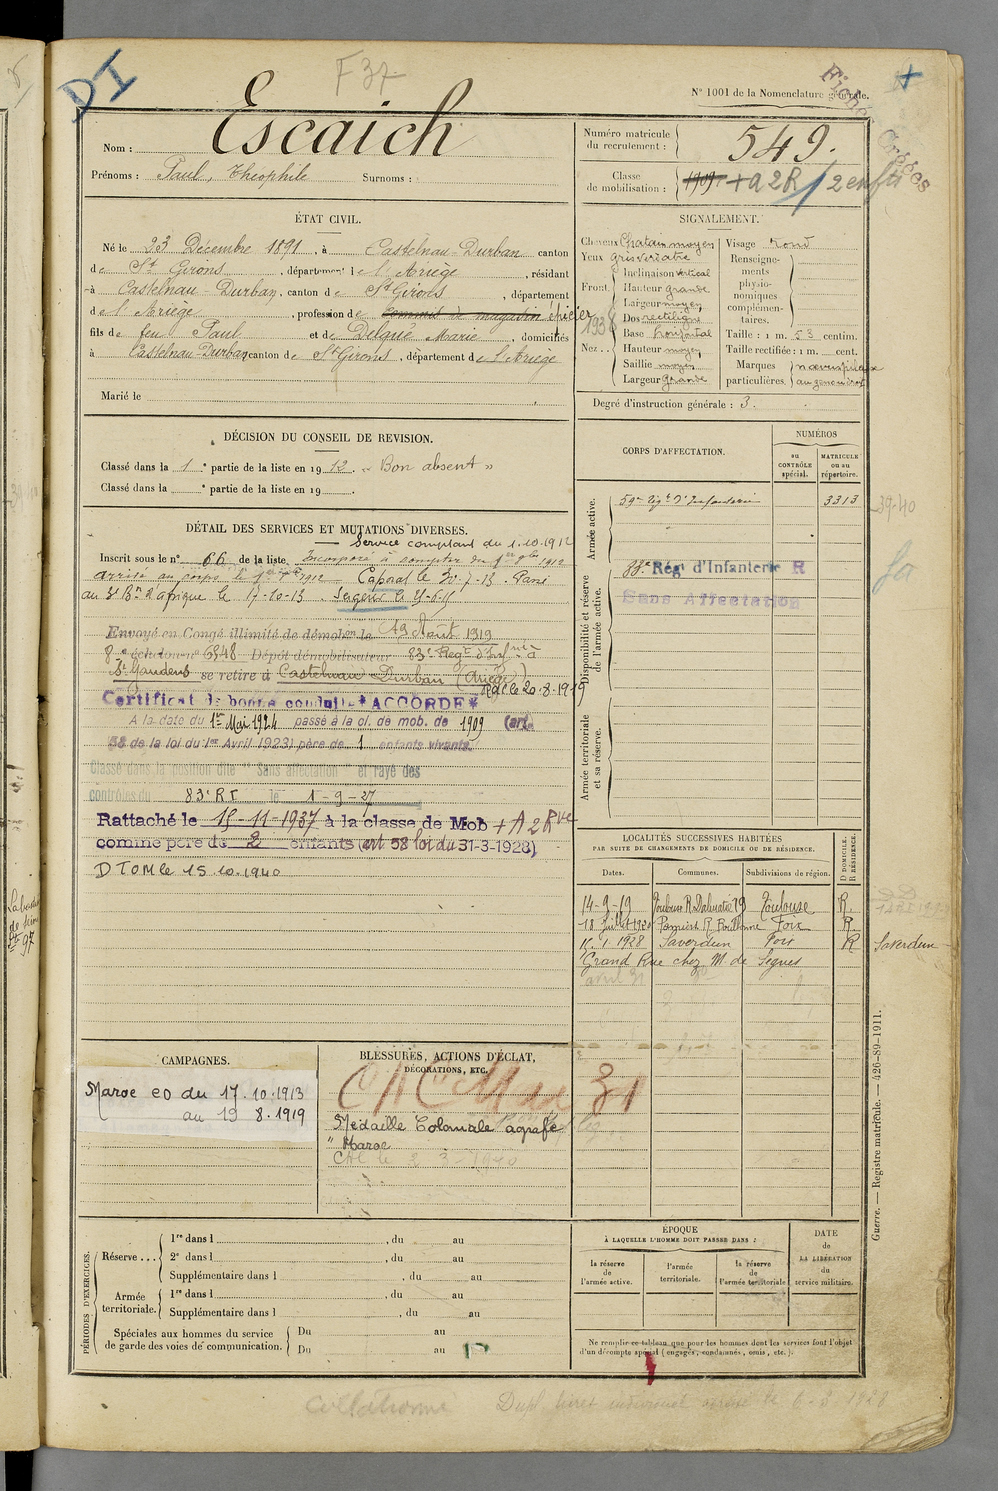 DI
F 37
N° 1001 de la Nomenclature générale.
Nom : Escaich
Prénoms : Paul, Théophile Surnoms :
Numéro matricule du recrutement : 549.
Classe de mobilisation : 1909 + A 2 R / 2 enfts
ÉTAT CIVIL.
Né le 23 Décembre 1891, à Castelnau-Durban canton
de St Girons, département de l'Ariège, résidant
à Castelnau-Durban, canton de St Girons, département
de l'Ariège, profession de commis de magasin épicier
fils de feu Paul et de Delqué Marie, domiciliés
à Castelnau-Durban canton de St Girons, département de l'Ariège
Marié le
SIGNALEMENT.
Cheveux Chatain moyen
Yeux gris verdatre
Front. Inclinaison vertical
Hauteur grande
Largeur moyen
Nez... Dos rectiligne
Base horizontal
Hauteur moyen
Saillie moyen
Largeur grande
1938
Visage rond
Renseignements physionomiques complémentaires.
Taille : 1 m. 53 centim.
Taille rectifiée : 1 m. cent.
Marques particulières.
Degré d'instruction générale : 3.
DÉCISION DU CONSEIL DE REVISION.
Classé dans la 1e partie de la liste en 1912. « Bon absent »
Classé dans la e partie de la liste en 19
CORPS D'AFFECTATION.
NUMÉROS
au CONTRÔLE spécial.
MATRICULE ou au répertoire.
Armée active.
59e Régt d'Infanterie 3313
39-40
Disponibilité et réserve de l'armée active.
83e Régt d'Infanterie R
Sans Affectation
Armée territoriale et sa réserve.
DÉTAIL DES SERVICES ET MUTATIONS DIVERSES.
Service comptant du 1.10.1912
Inscrit sous le n° 66 de la liste. Incorporé à compter du
arrivé au corps le 1912 Caporal le 20-7-13. Passé
au 3e Bn d'Afrique le 17-10-13 Sergent le 25-6-15
Envoyé en Congé illimité de démobon le 19 Août 1919
8e échelon n° 6348 Dépôt démobilisateur 83e Régt d'Infrie à
St Gaudens se retire à Castelnau-Durban (Ariège)
RDC le 20-8-1919
Certificat de bonne conduite "ACCORDÉ"
A la date du 1er Mai 1924 passé à la cl. de mob. de 1909 (art.
58 de la loi du 1er Avril 1923) père de 1 enfants vivants.
Classé dans la position dite "Sans affectation" et rayé des
contrôles du 83e RI le 1-9-27
Rattaché le 15-11-1937 à la classe de Mob + A 2 Rve
comme père de 2 enfants (art 58 loi du 31-3-1928)
D TOM le 15.10.1940
LOCALITÉS SUCCESSIVES HABITÉES
PAR SUITE DE CHANGEMENTS DE DOMICILE OU DE RÉSIDENCE.
Dates. Communes. Subdivisions de région. D DOMICILE. R RÉSIDENCE.
14-9-19 Toulouse R. Dalmatie 19 Toulouse R.
18 Juillet 1920 Pamiers R. Foix R.
15.1.1928 Saverdun Foix R Saverdun
Grand Rue chez M. de Segues
avril 31
CAMPAGNES.
Maroc EO du 17.10.1913
au 19 8.1919
BLESSURES, ACTIONS D'ÉCLAT,
DÉCORATIONS, ETC.
Médaille Coloniale agrafe
"Maroc
2 3-1940
Guerre. — Registre matricule. — 426-89-1911.
PÉRIODES D'EXERCICES.
Réserve... 1re dans l , du au
2e dans l , du au
Supplémentaire dans l , du au
Armée territoriale. 1re dans l , du au
Supplémentaire dans l , du au
Spéciales aux hommes du service de garde des voies de communication. Du au
Du au
ÉPOQUE
À LAQUELLE L'HOMME DOIT PASSER DANS :
la réserve de l'armée active.
l'armée territoriale.
la réserve de l'armée territoriale
DATE de LA LIBÉRATION du service militaire.
Ne remplir ce tableau que pour les hommes dont les services font l'objet
d'un décompte spécial (engagés, condamnés, omis, etc.).
Collationné
Dupl. livret individuel adressé le 6-3-1928